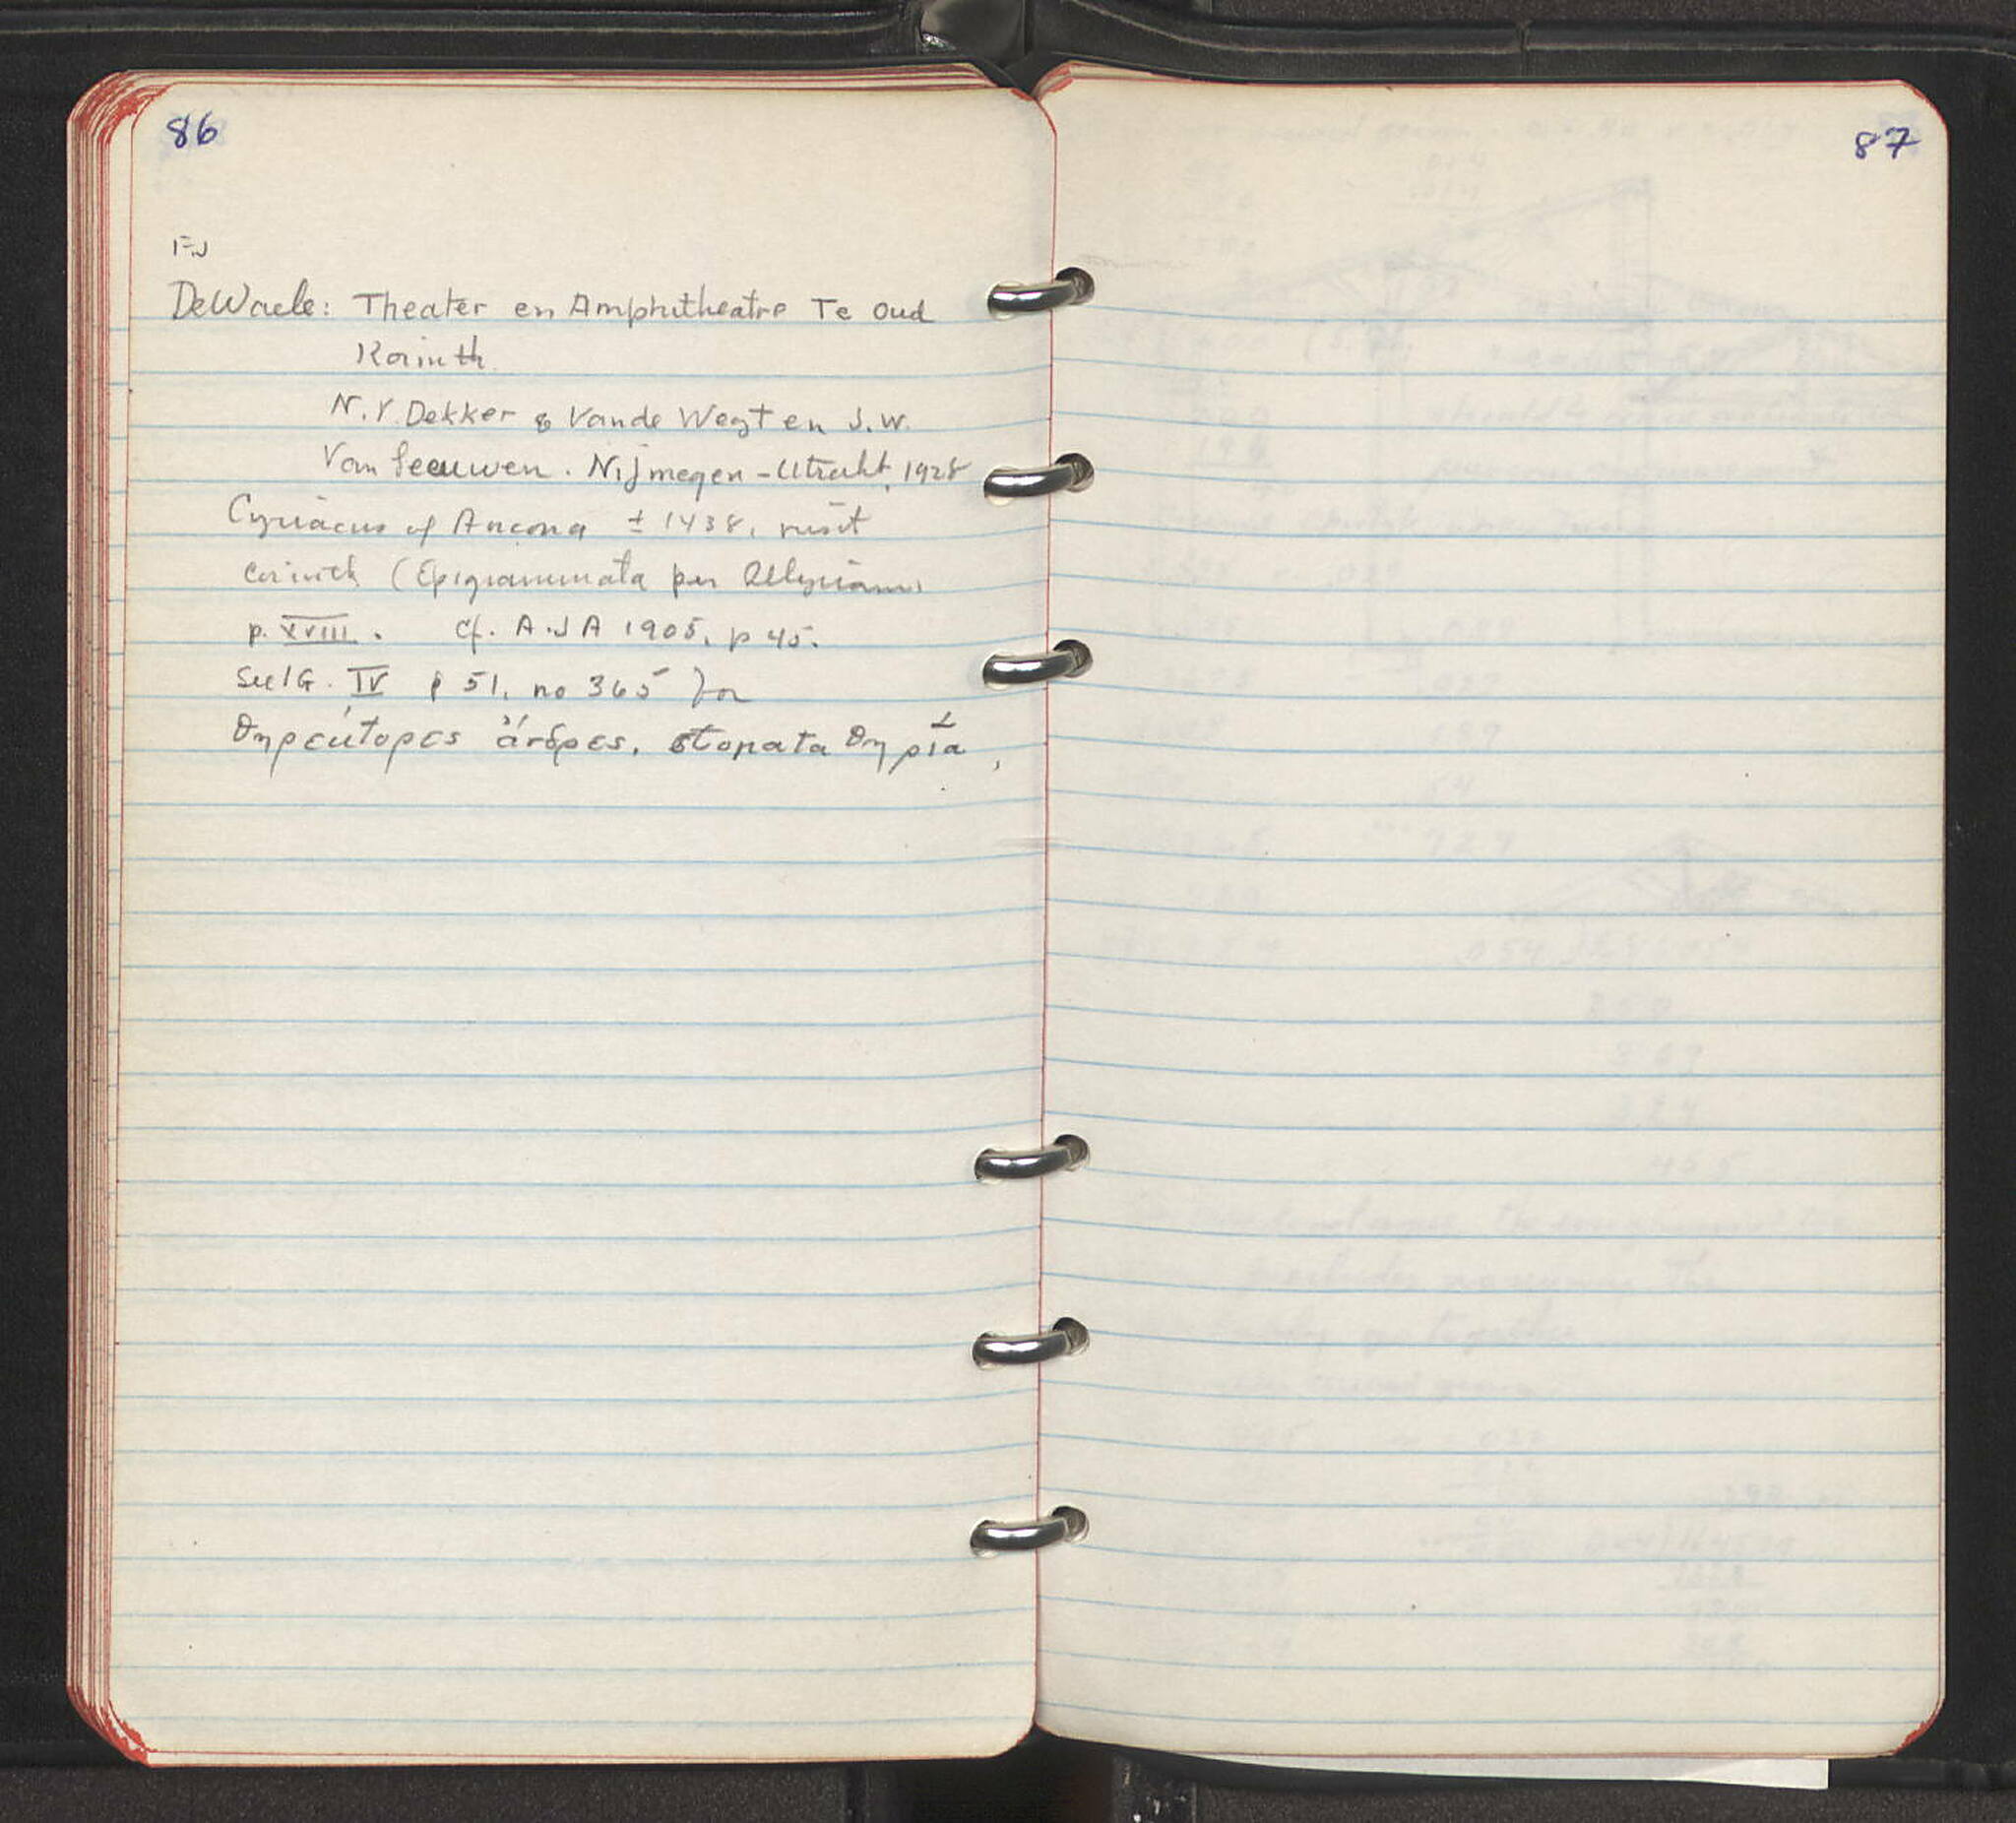 86
F.J
DeWaele: Theater en Amphitheatre Te Oud
Korinth.
N.V. Dekker & Vande Vegt en J.W.
Van Leeuwen. Nijmegen - Utrecht, 1928
Cyriacus of Ancona ± 1438, visit
Corinth (Epigrammata per Illyricum,
p. XVIII. cf. A.J A 1905, p 45.
See IG. IV p 51, no 365 for
θηρεύτορες ἄνδρες, στοματα θηρία,
87